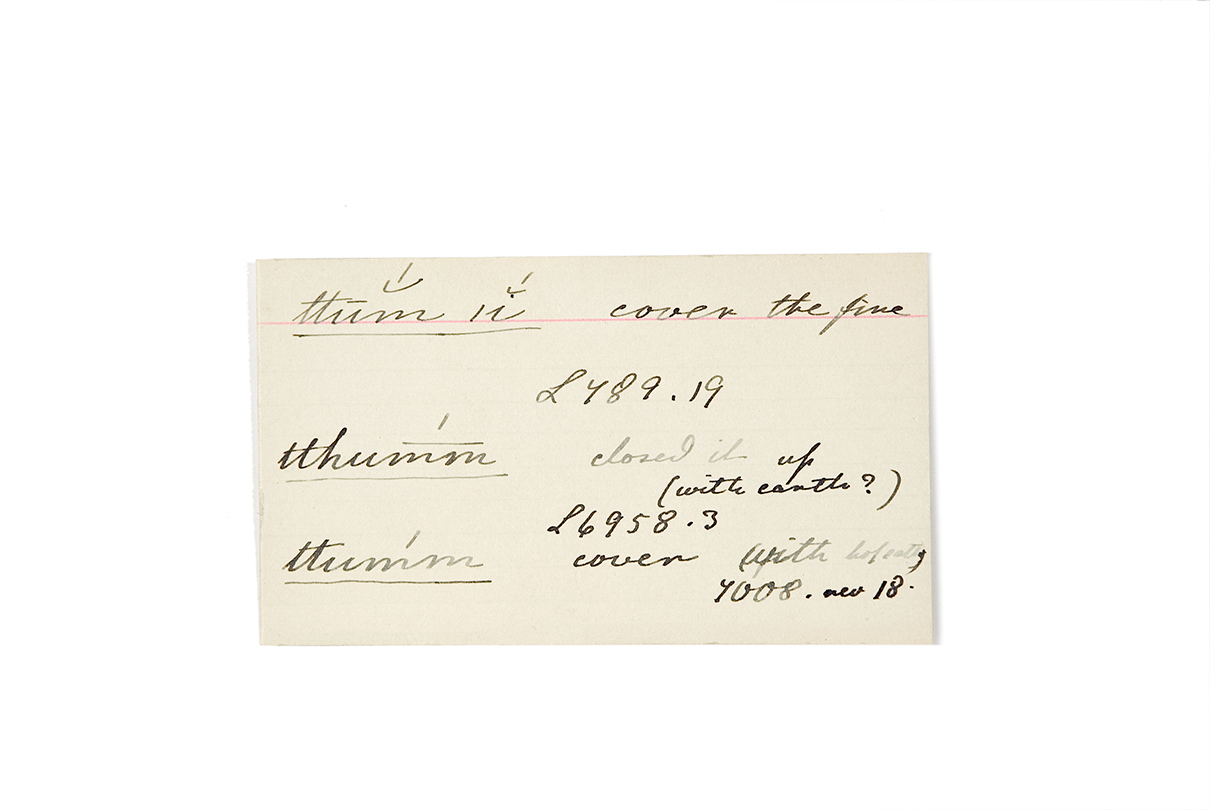 ttŭ́m ĭ́ cover the fire
L 489.19
tthúm̄m closed it up
(with earth?)
L 6958.3
ttúmm cover (with
7008. rev 18.